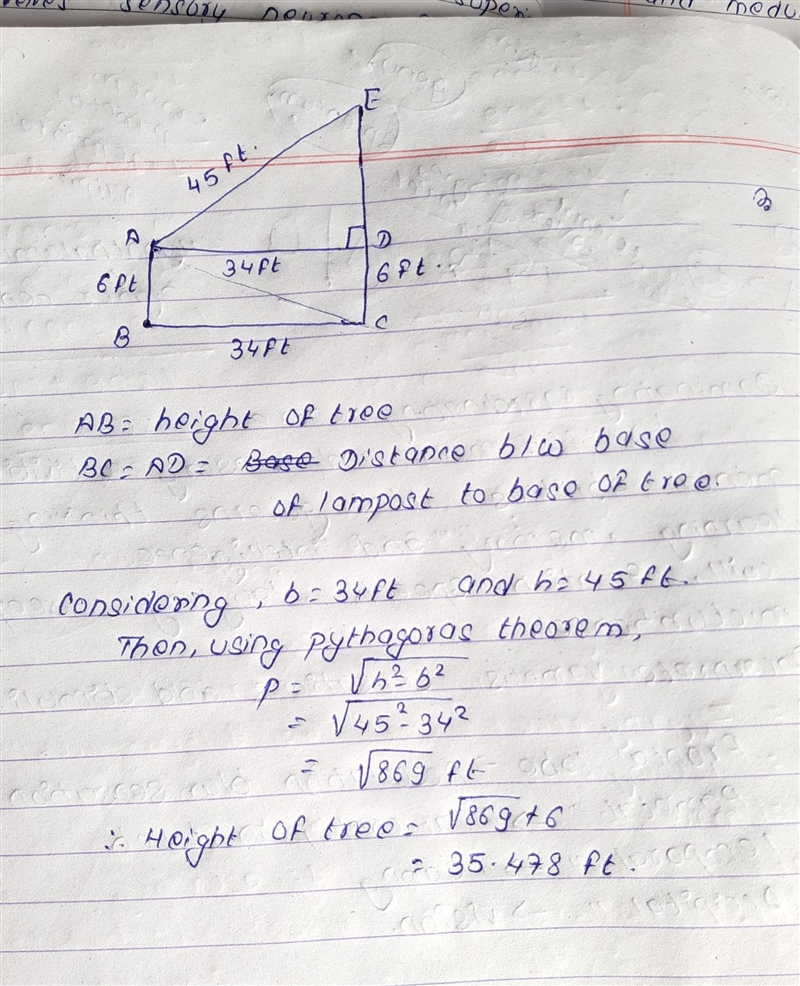 sensory neurons super. and modu
E
45 ft.
A D
34ft
6ft 6ft.
B C
34ft
AB = height of tree
BC = AD = Base Distance b/w base
of lampost to base of tree.
Considering, b = 34ft and h = 45 ft.
Then, using pythagoras theorem,
P = √h²- b²
= √45²- 34²
= √869 ft
∴ Height of tree = √869 + 6
= 35.478 ft.